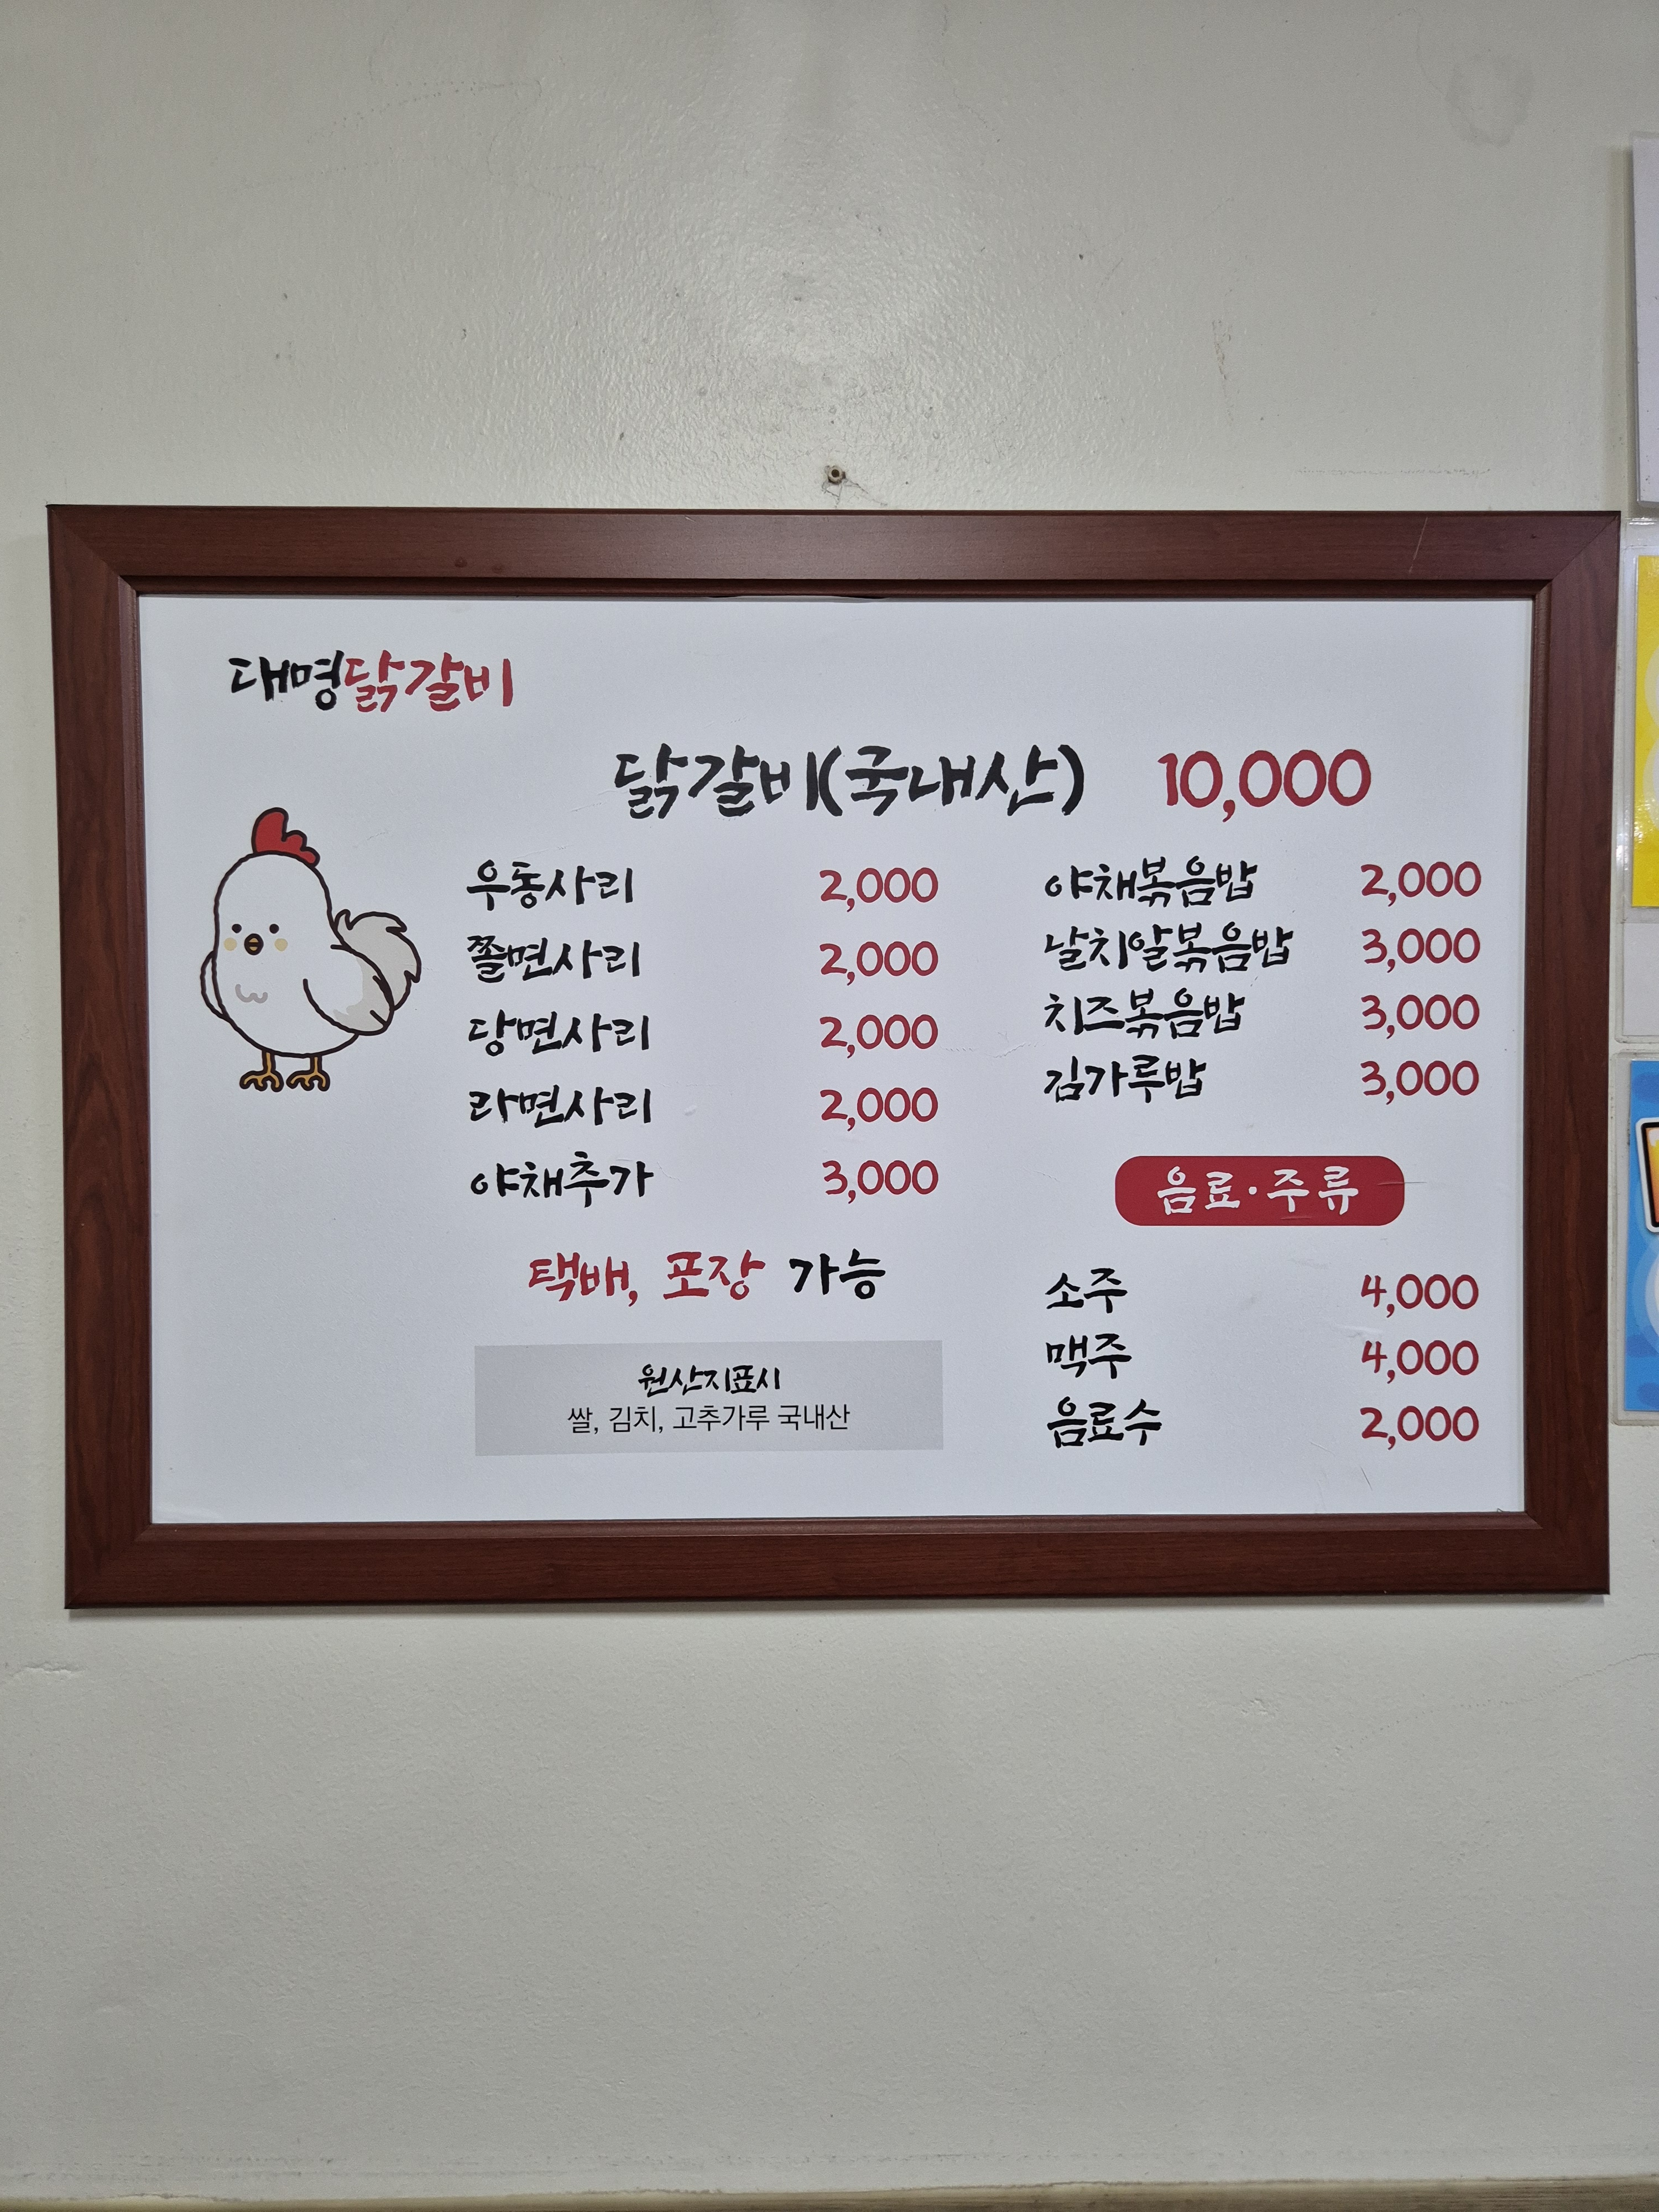 대명닭갈비
닭갈비(국내산) 10,000
우동사리 2,000
쫄면사리 2,000
당면사리 2,000
라면사리 2,000
야채추가 3,000
택배, 포장 가능
원산지표시
쌀, 김치, 고추가루 국내산
야채볶음밥 2,000
날치알볶음밥 3,000
치즈볶음밥 3,000
김가루밥 3,000
음료·주류
소주 4,000
맥주 4,000
음료수 2,000